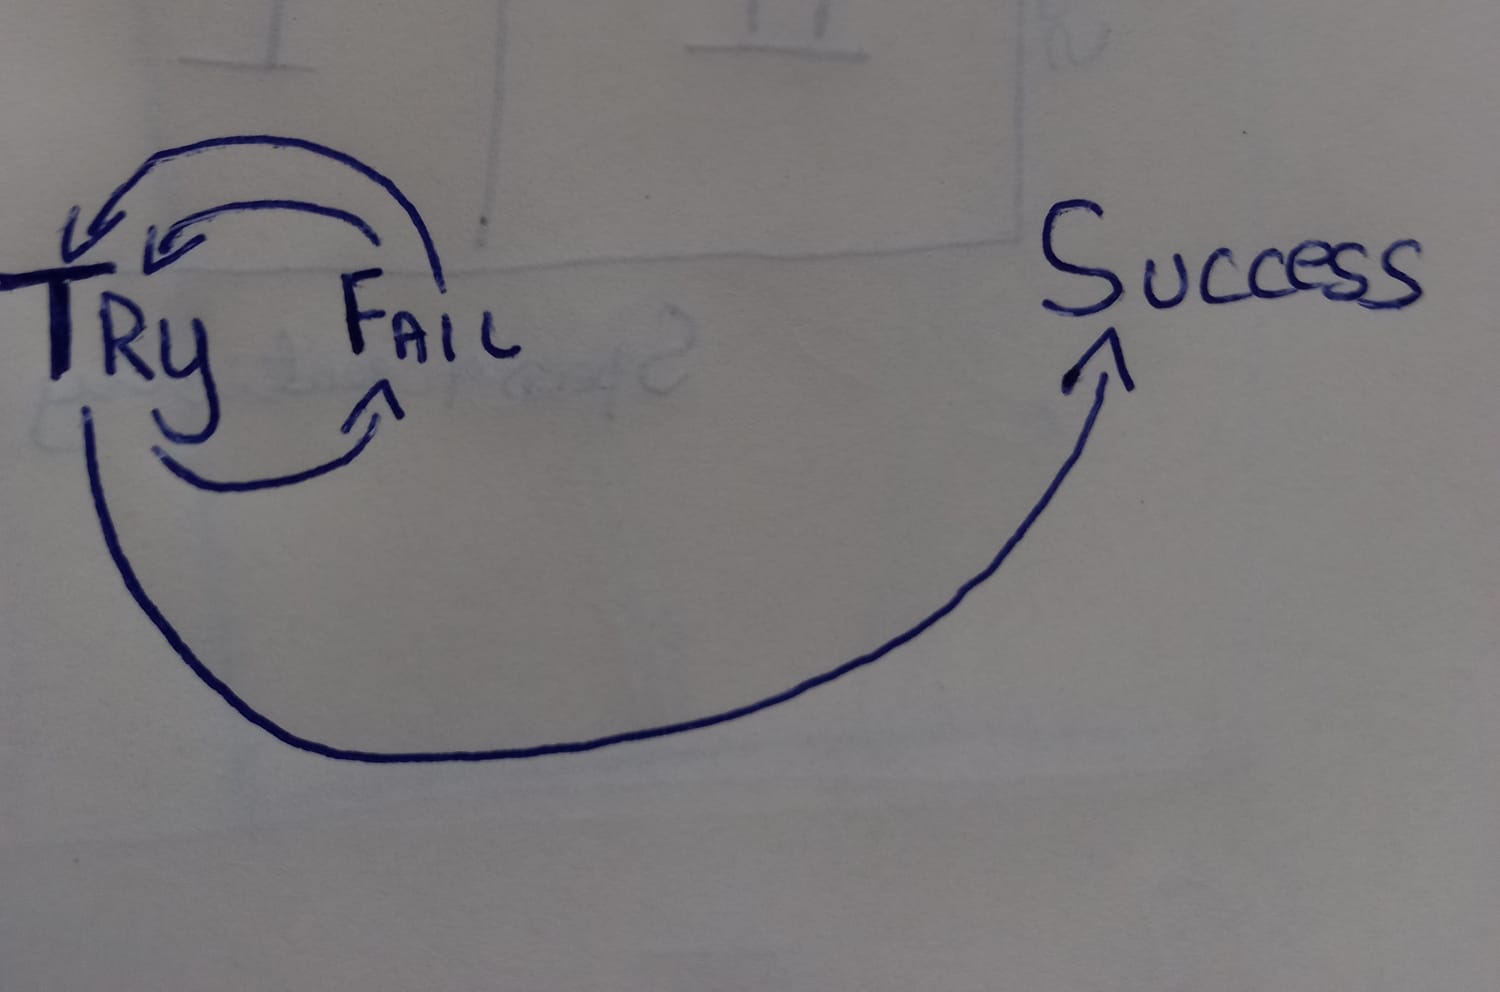 TRy FAIL SUCCESS